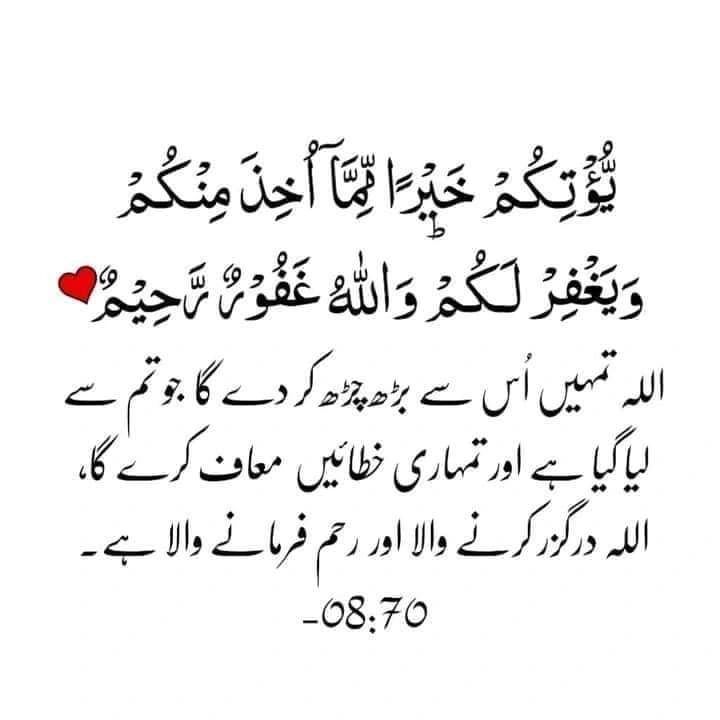 يُّؤْتِكُمْ خَيْرًا مِّمَّآ اُخِذَ مِنْكُمْ
وَيَغْفِرْ لَكُمْ ؕ وَاللّٰهُ غَفُوْرٌ رَّحِيْمٌ
اللہ تمہیں اُس سے بڑھ چڑھ کر دے گا جو تم سے
لیا گیا ہے اور تمہاری خطائیں معاف کرے گا،
اللہ درگزر کرنے والا اور رحم فرمانے والا ہے۔
-08:70